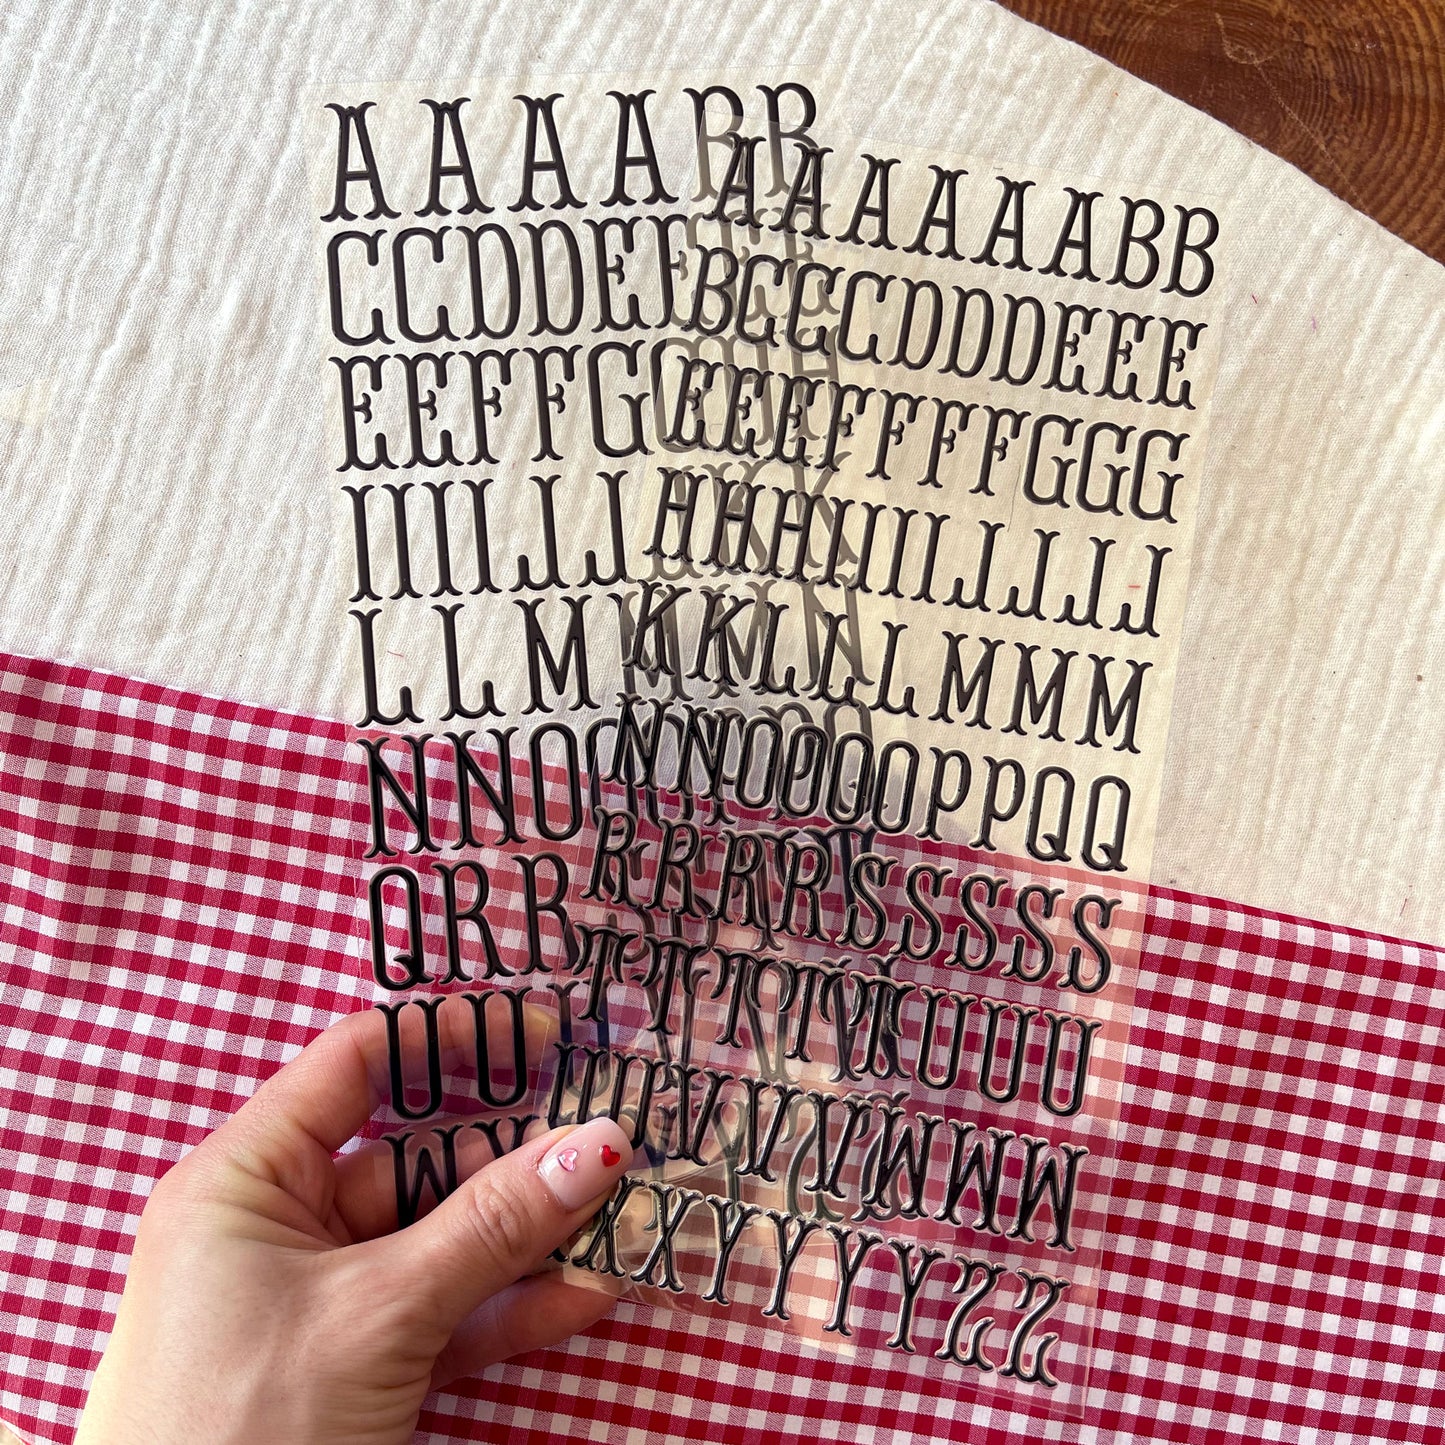 AAAABB
CCDDE
EEFFG
IIIIJJ
LLM
NNO
QRR
UU
W
AAAAAABB
BCCCDDDEEE
EEEFFFFGGG
HHHIIIIJJJJ
KKLLLMMM
NNOOOOPPQQ
RRRRSSSSS
TTTTUUU
WWW
XXYYYYZZ